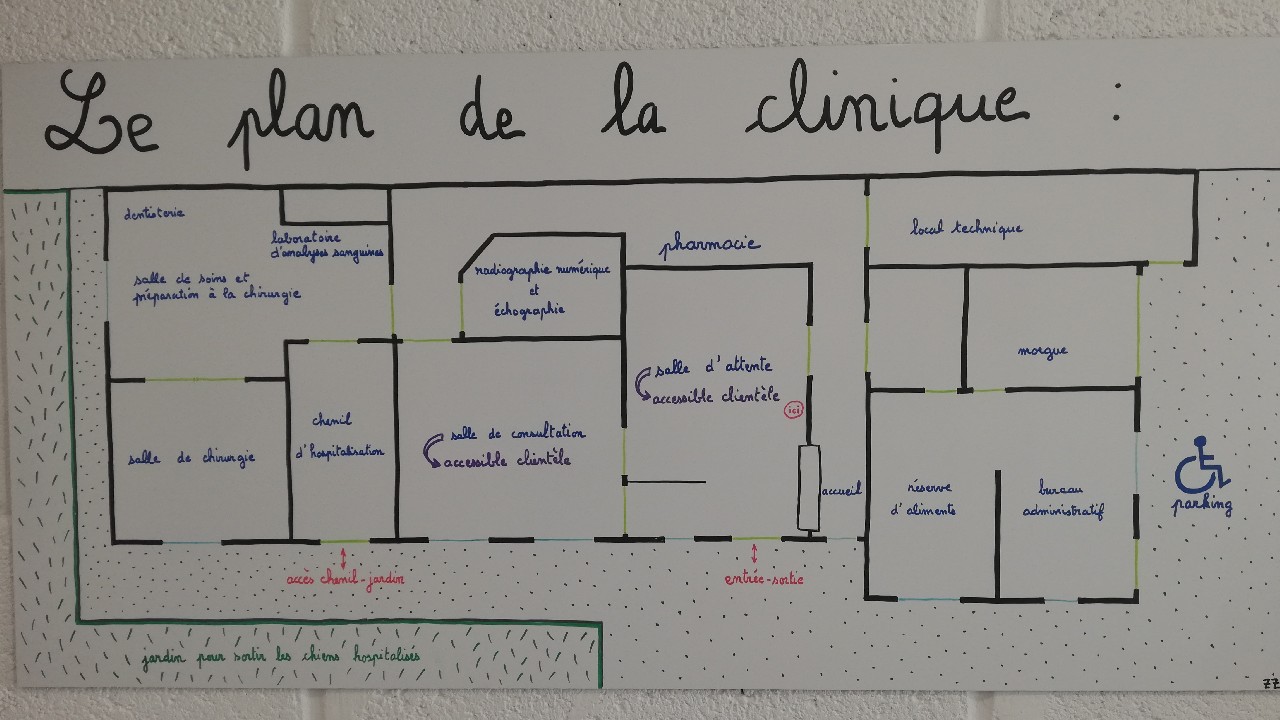 Le plan de la clinique :
dentisterie
laboratoire
d'analyses sanguines
salle de soins et
préparation à la chirurgie
radiographie numérique
et
échographie
pharmacie
local technique
salle d'attente
accessible clientèle
ici
morgue
chenil
d'hospitalisation
salle de chirurgie
salle de consultation
accessible clientèle
accueil
réserve
d'aliments
bureau
administratif
parking
accès chenil-jardin
entrée-sortie
jardin pour sortir les chiens hospitalisés
ZZ